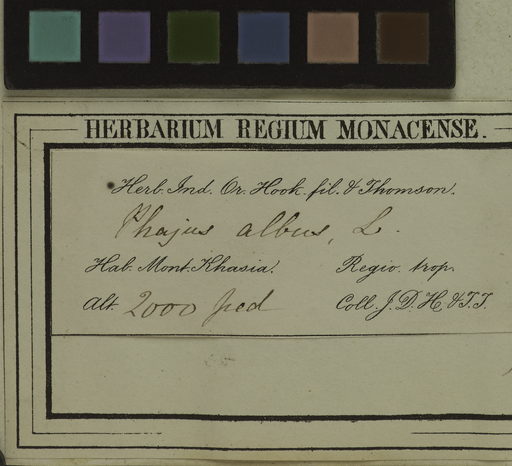 HERBARIUM REGIUM MONACENSE.
Herb. Ind. Or. Hook. fil. & Thomson.
Phajus albus, L.
Hab. Mont. Khasia. Regio. trop.
Alt. 2000 ped Coll. J. D. H. & T. T.